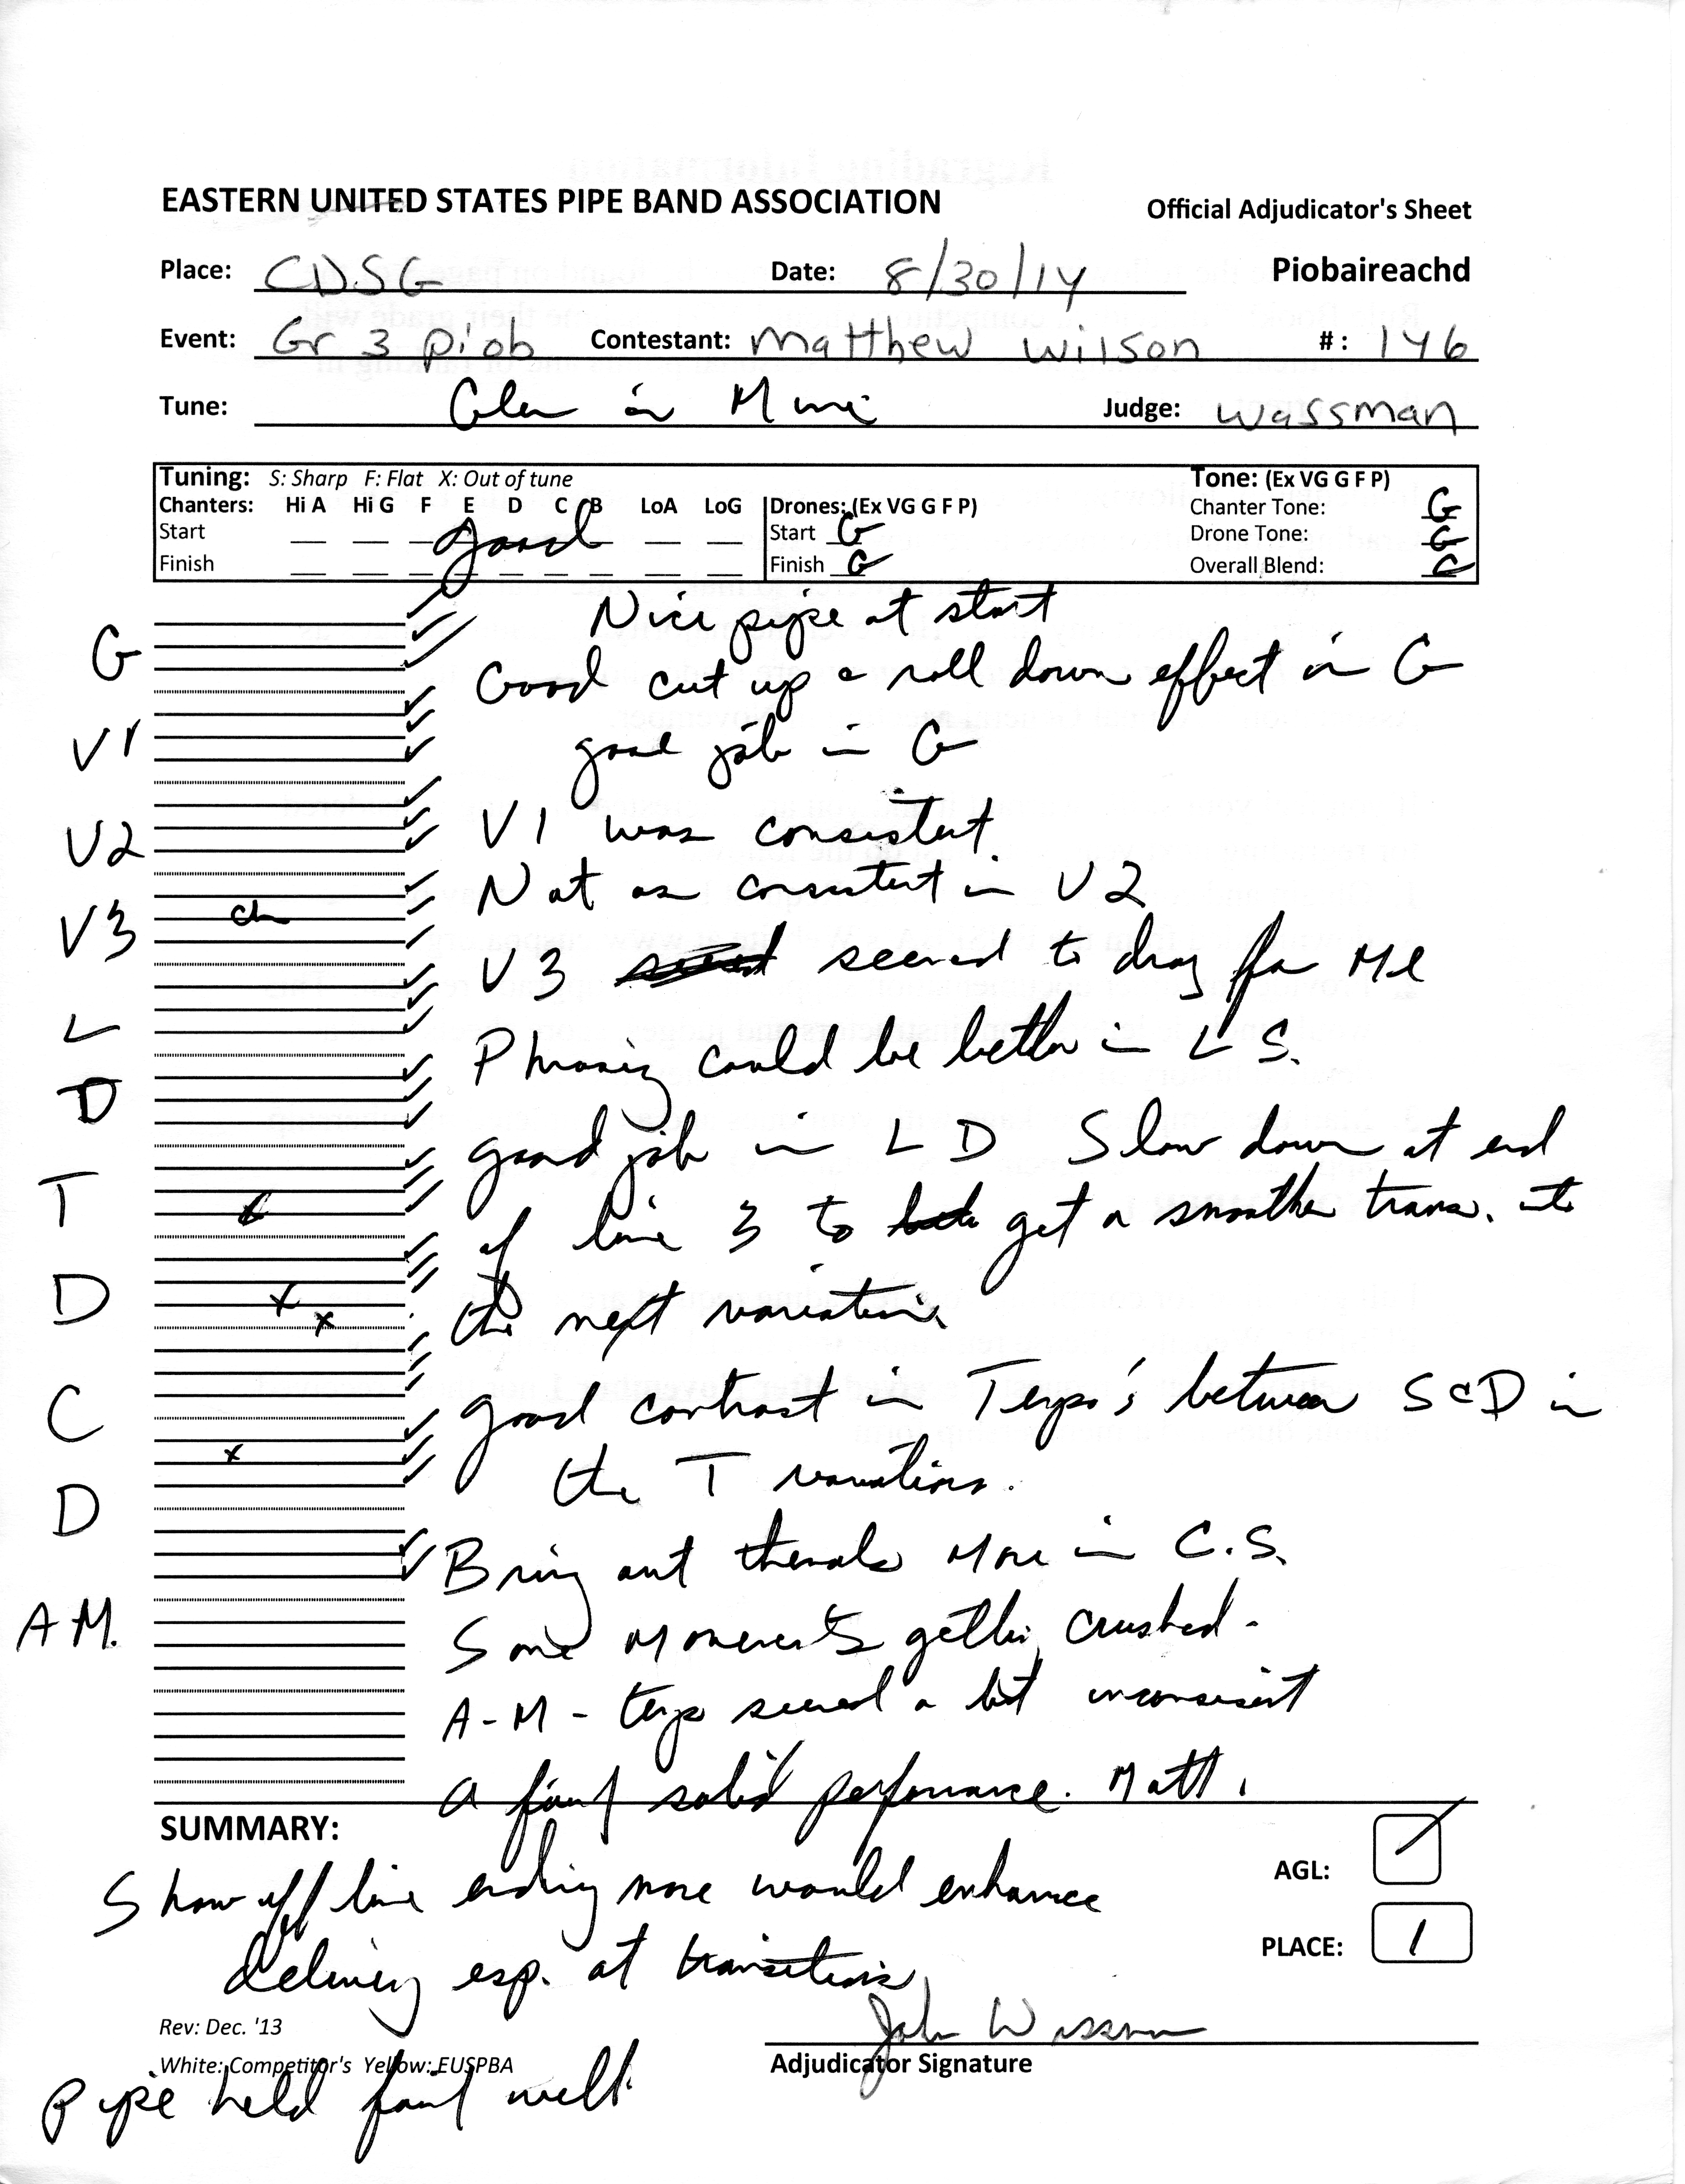 EASTERN UNITED STATES PIPE BAND ASSOCIATION Official Adjudicator's Sheet
Place: CDSG Date: 8/30/14 Piobaireachd
Event: Gr 3 piob Contestant: Matthew Wilson #: 146
Tune: Glen is Mine Judge: Wassman
Tuning: S: Sharp F: Flat X: Out of tune Tone: (Ex VG G F P)
Chanters: Hi A Hi G F E D C B LoA LoG Drones: (Ex VG G F P) Chanter Tone: G
Start good Start G Drone Tone: G
Finish Finish G Overall Blend: G
Nice pipe at start
G Good cut up & roll down effect in G
V1 good job in G
V2 V1 was consistent
Not as consistent in V2
V3 ch
V3 seemed to drag for me
L Phrasing could be better in L S.
D
good job in L D Slow down at end
T of line 3 to get a smoother trans. into
D x x the next variation
C good contrast in Tempo's between S & D in
x the T variations.
D
Bring out themals more in C.S.
A M. Some movements getting crushed -
A-M - tempo seemed a bit inconsisent
A fairly solid performance. Matt.
SUMMARY:
Show off line ending more would enhance AGL:
delivery esp. at transitions PLACE: 1
Rev: Dec. '13 John Wassman
White: Competitor's Yellow: EUSPBA Adjudicator Signature
Pipe held fairly well